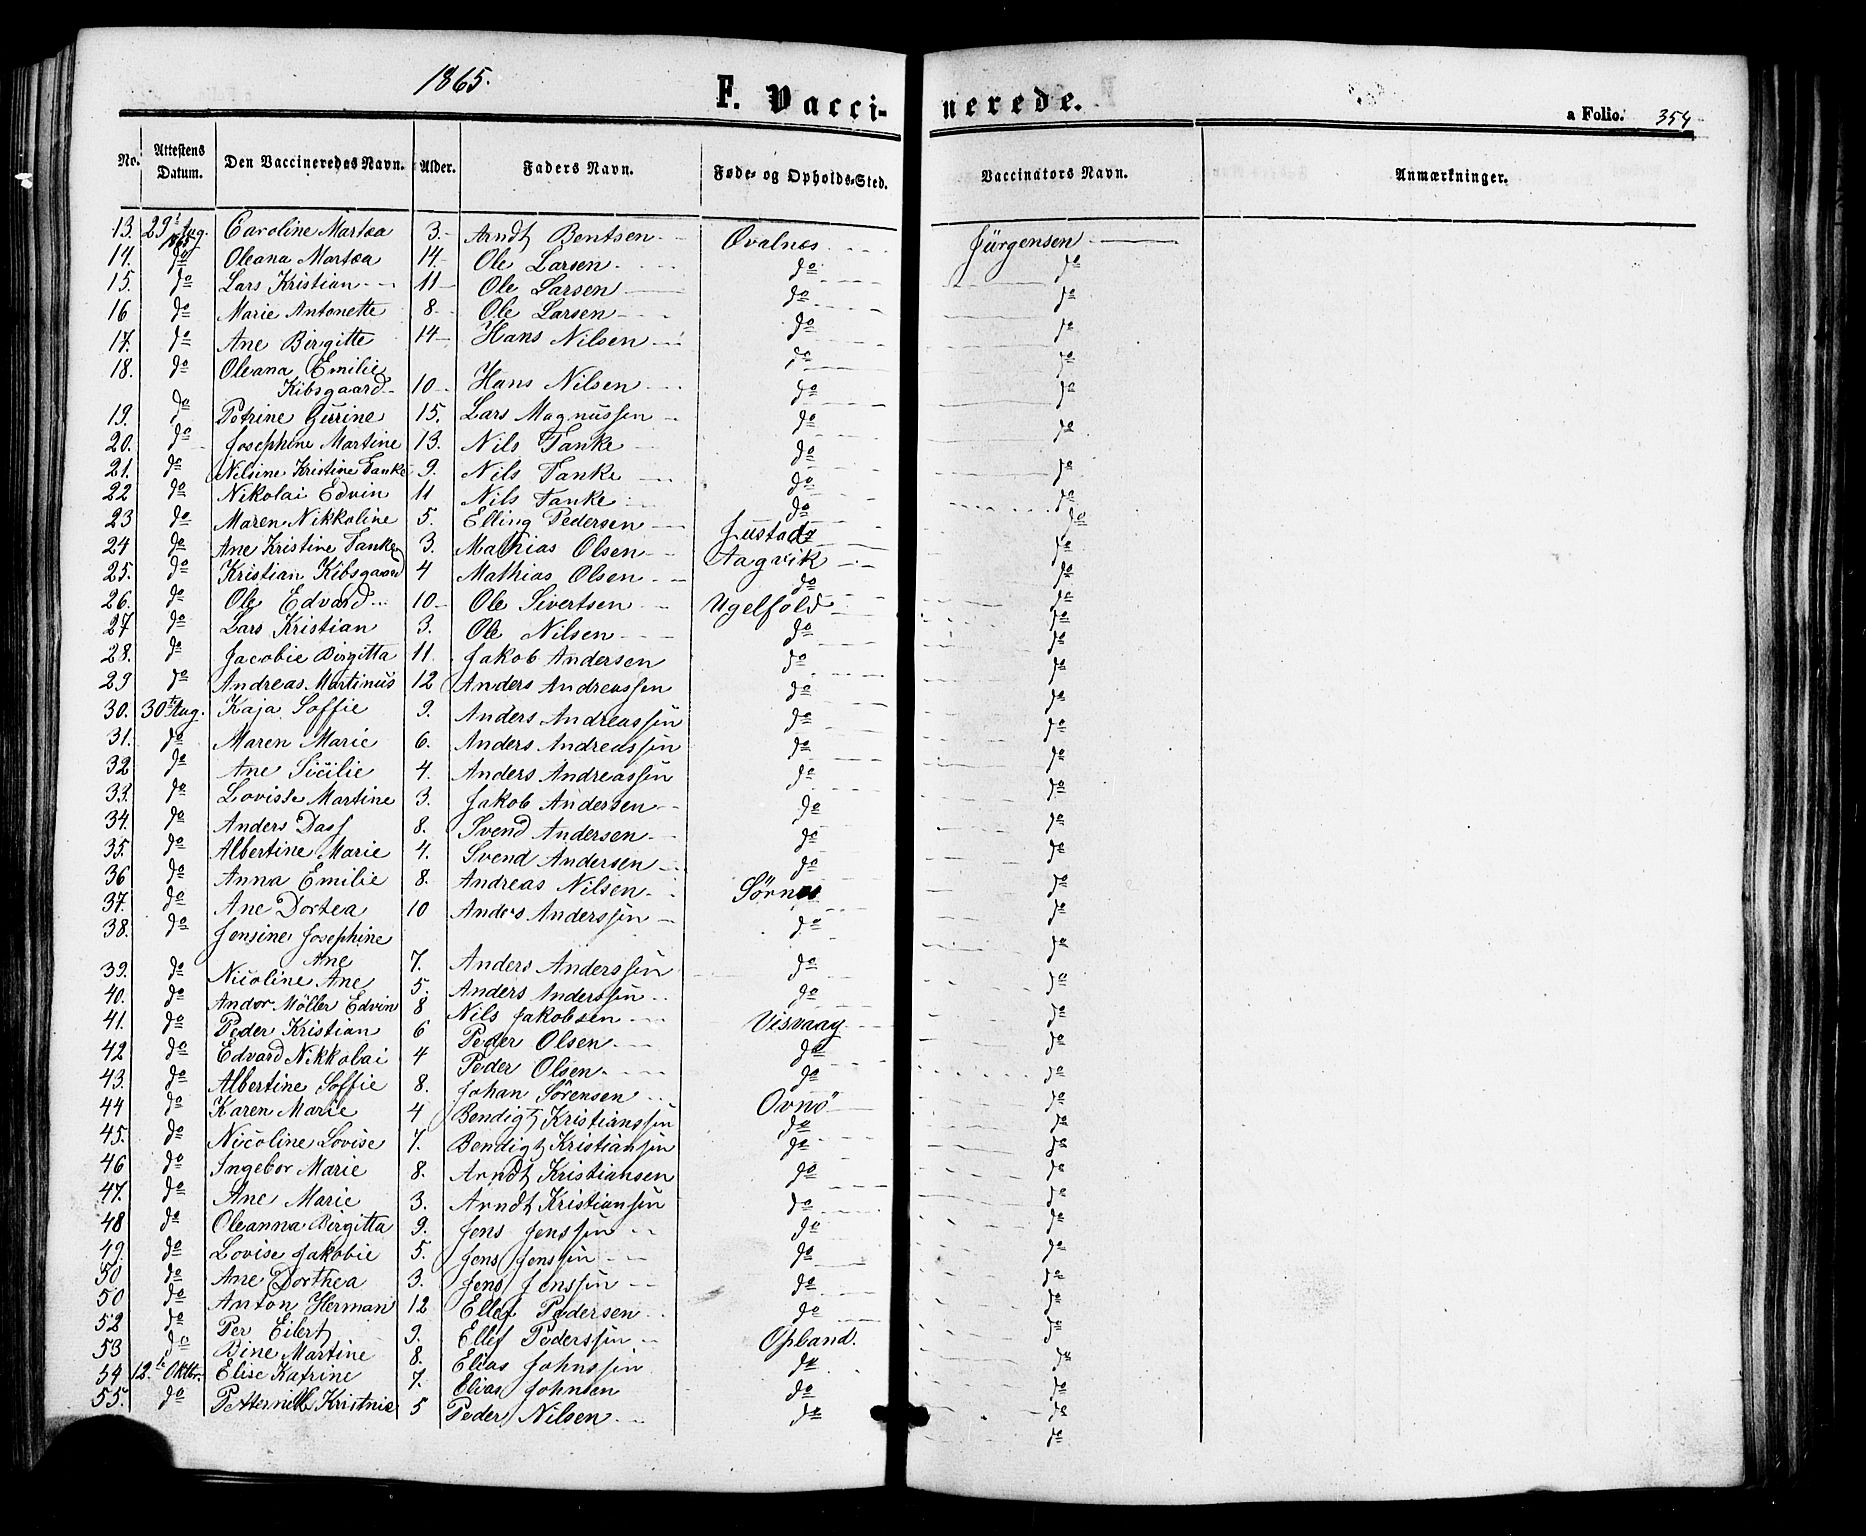 1865.
F. Vaccinerede.
a Folio. 354
No. Attestens Datum. Den Vaccineredes Navn. Alder. Faders Navn. Føde- og Opholds-Sted. Vaccinators Navn. Anmærkninger.
13. 29 Aug. 1865 Caroline Martea 3 Arndt Bentsen Qvalnes Jürgensen
14. do Oleana Martea 14 Ole Larsen do do
15. do Lars Kristian 11 Ole Larsen do do
16 do Marie Antonette 8 Ole Larsen do do
17. do Ane Birgitte 14 Hans Nilsen do do
18. do Oleana Emilie Kibsgaard 10 Hans Nilsen do do
19. do Petrine Gurine 15. Lars Magnussen do do
20. do Josephine Martine 13. Nils Tanke do do
21. do Nilsine Kristine Tanke 9. Nils Tanke do do
22 do Nikolai Edvin 11 Nils Tanke do do
23 do Maren Nikkoline 5. Elling Pedersen Justad do
24 do Ane Kristine Tanke 3. Mathias Olsen Aagvik do
25. do Kristian Kibsgaard 4 Mathias Olsen do do
26. do Ole Edvard 10 Ole Sivertsen Ugelfold do
27 do Lars Kristian 3. Ole Nilsen do do
28. do Jacobie Birgitta 11. Jakob Andersen do do
29 do Andreas Martinus 12 Anders Andreassen do do
30. 30te Aug. Kaja Soffie 9. Anders Andreassen do do
31. do Maren Marie 6. Anders Andreassen do do
32 do Ane Sicilie 4. Anders Andreassen do do
33. do Lovisse Martine 3. Jakob Andersen do do
34. do Anders Dass 8. Svend Andersen do do
35. do Albertine Marie 4. Svend Andersen do do
36 do Anna Emilie 8. Andreas Nilsen Sørnes do
37. do Ane Dortea 10 Anders Anderssen do do
38. do Jensine Josephine Ane 7. Anders Anderssen do do
39. do Nicoline Ane 5. Anders Anderssen do do
40. do Andor Möller Edvin 8 Nils Jakobsen Visvaag do
41. do Peder Kristian 6 Peder Olsen do do
42 do Edvard Nikkolai 4 Peder Olsen do do
43. do Albertine Soffie 8. Johan Sörensen Ovnö do
44 do Karen Marie 4 Bendigt Kristianssen do do
45. do Nicoline Lovise 7. Bendigt Kristiansen do do
46 do Ingebor Marie 8. Arndt Kristiansen do do
47. do Ane Marie 3. Arndt Kristiansen do do
48 do Oleanna Birgitta 9. Jens Jenssen do do
49. do Lovise Jakobie 5. Jens Jenssen do do
50 do Ane Dorthea 3. Jens Jenssen do do
50 do Anton Herman 12 Ellef Pedersen do do
52 do Per Eilert 9. Ellef Pederssen Opland. do
53 do Bine Martine 8. Elias Johnssen do do
54 12te Oktbr. Elise Katrine 7. Elias Johnsen do do
55. do Petternille Kristnie 5 Peder Nilsen do do